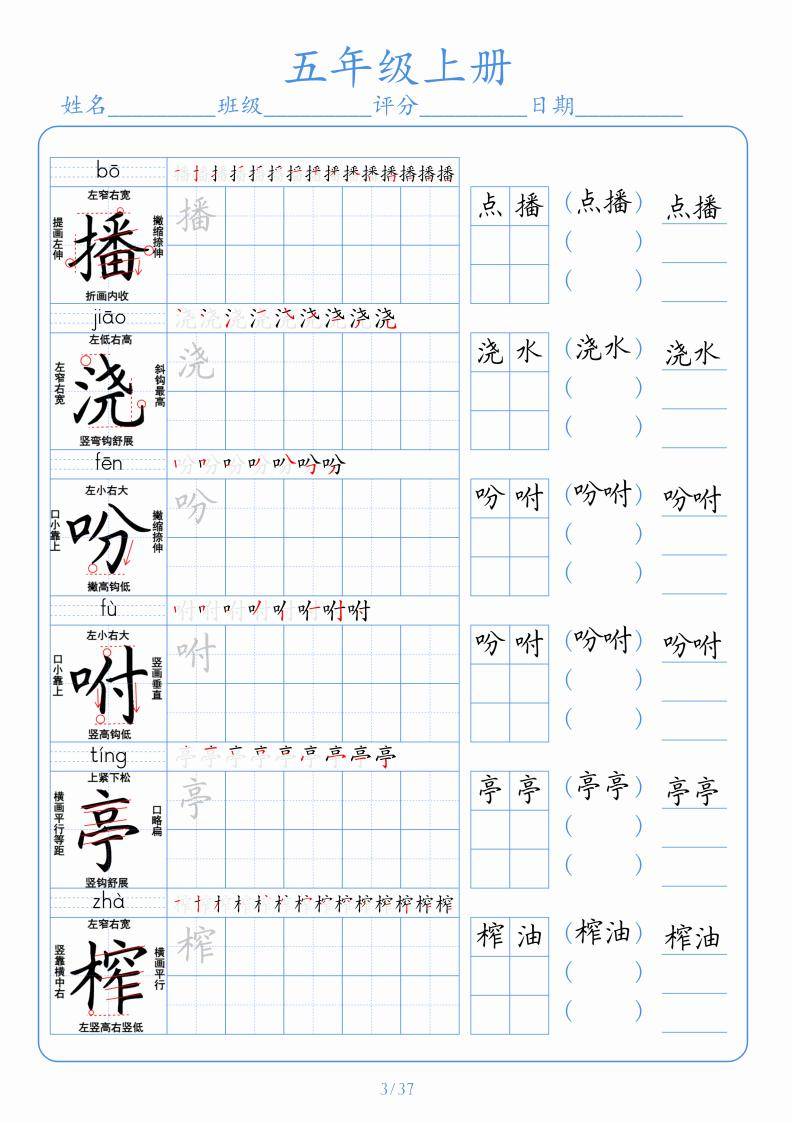 五年级上册
姓名__________班级__________评分__________日期__________
bō
左窄右宽
提画左伸
播
撇缩捺伸
折画内收
播
点 播 （点播） 点播
（ ）
（ ）
jiāo
左低右高
左窄右宽
浇
斜钩最高
竖弯钩舒展
浇
浇 水 （浇水） 浇水
（ ）
（ ）
fēn
左小右大
口小靠上
吩
撇缩捺伸
撇高钩低
吩
吩 咐 （吩咐） 吩咐
（ ）
（ ）
fù
左小右大
口小靠上
咐
竖画垂直
竖高钩低
咐
吩 咐 （吩咐） 吩咐
（ ）
（ ）
tíng
上紧下松
横画平行等距
亭
口略扁
竖钩舒展
亭
亭 亭 （亭亭） 亭亭
（ ）
（ ）
zhà
左窄右宽
竖靠横中右
榨
横画平行
左竖高右竖低
榨
榨 油 （榨油） 榨油
（ ）
（ ）
3/37